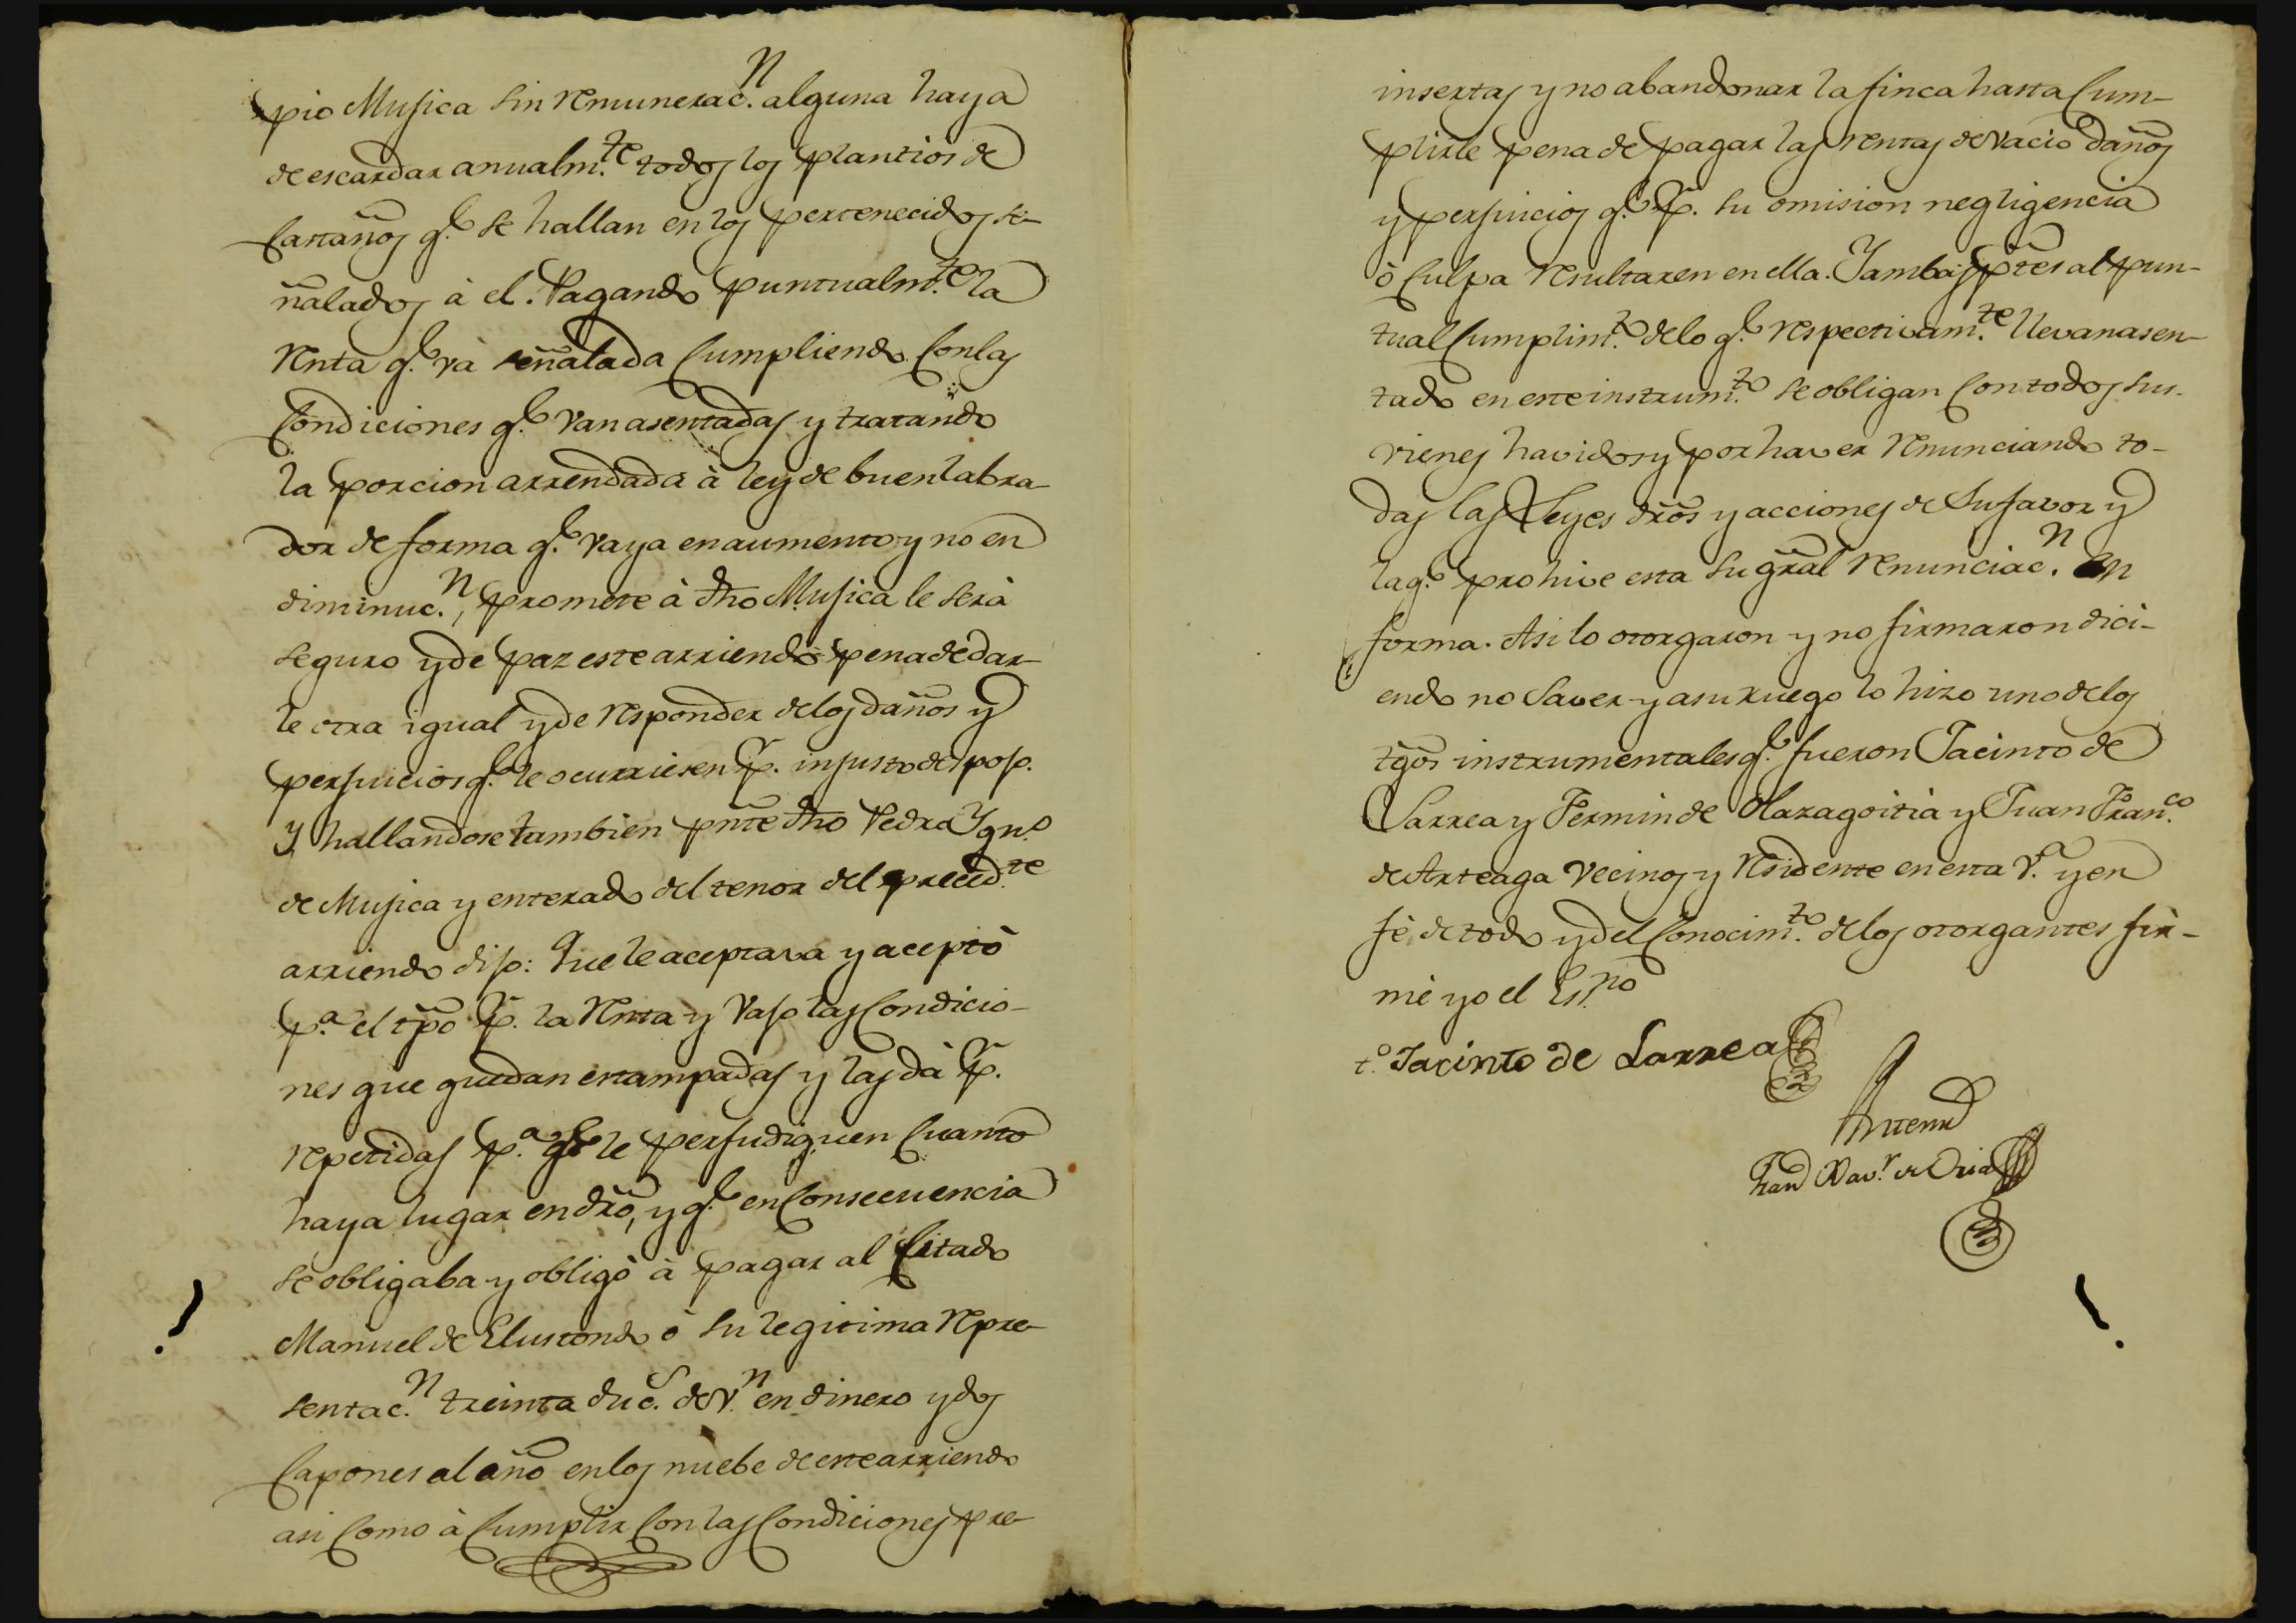 pio Mujica sin remunerac.n alguna haya
de escardar anualm.te todos los plantios de
Castaños q.e se hallan en los pertenecidos se-
ñalados à el. Pagando puntualm.te la
renta q.e và señalada Cumpliendo Con las
Condiciones q.e van asentadas y tratando
la porcion arrendada à ley de buen labra-
dor de forma q.e vaya en aumento y no en
diminuc.n, promete à dho Mujica le serà
seguro y de paz este arriendo pena de dar-
le otra igual y de responder de los daños y
perjuicios q.e le ocurriesen p.r injusto despojo.
Y hallandose tambien pnte dho Pedro Ygn.o
de Mujica y enterado del tenor del preced.te
arriendo dijo: Que le aceptava y aceptò
p.a el tpo p.r la Renta y vajo las Condicio-
nes que quedan estampadas y las dà p.r
repetidas p.a q.e le perjudiquen Cuanto
haya lugar en dro, y q.e en Consecuencia
se obligaba y obligò à pagar al Citado
Manuel de Elustondo ò su legitima Repre-
sentac.n treinta duc.s de v.n en dinero y dos
Capones al año en los nuebe de este arriendo
asi Como à Cumplir Con las Condiciones pre-
insertas y no abandonar la finca hasta Cum-
plirle pena de pagar las rentas de vacio daños
y perjuicios q.e p.r su omision negligencia
ò Culpa resultaren en ella. Y ambas ptes al pun-
tual Cumplim.to de lo q.e respectivam.te llevan asen-
tado en este instrum.to se obligan Con todos sus
vienes havidos y por haver renunciando to-
das las Leyes dros y acciones de su favor y
la q.e prohive esta su gral renunciac.n en
forma. Asi lo otorgaron y no firmaron dici-
endo no saver y a su ruego lo hizo uno de los
tgos instrumentales q.e fueron Jacinto de
Larrea y Fermin de Olaragoitia y Juan Fran.co
de Arteaga vecinos y residente en esta V.a y en
fè de todo y del Conocim.to de los otorgantes fir-
mè yo el Ess.no
t.o Jacinto de Larrea
Antemi
Fran Xav.r de Oria